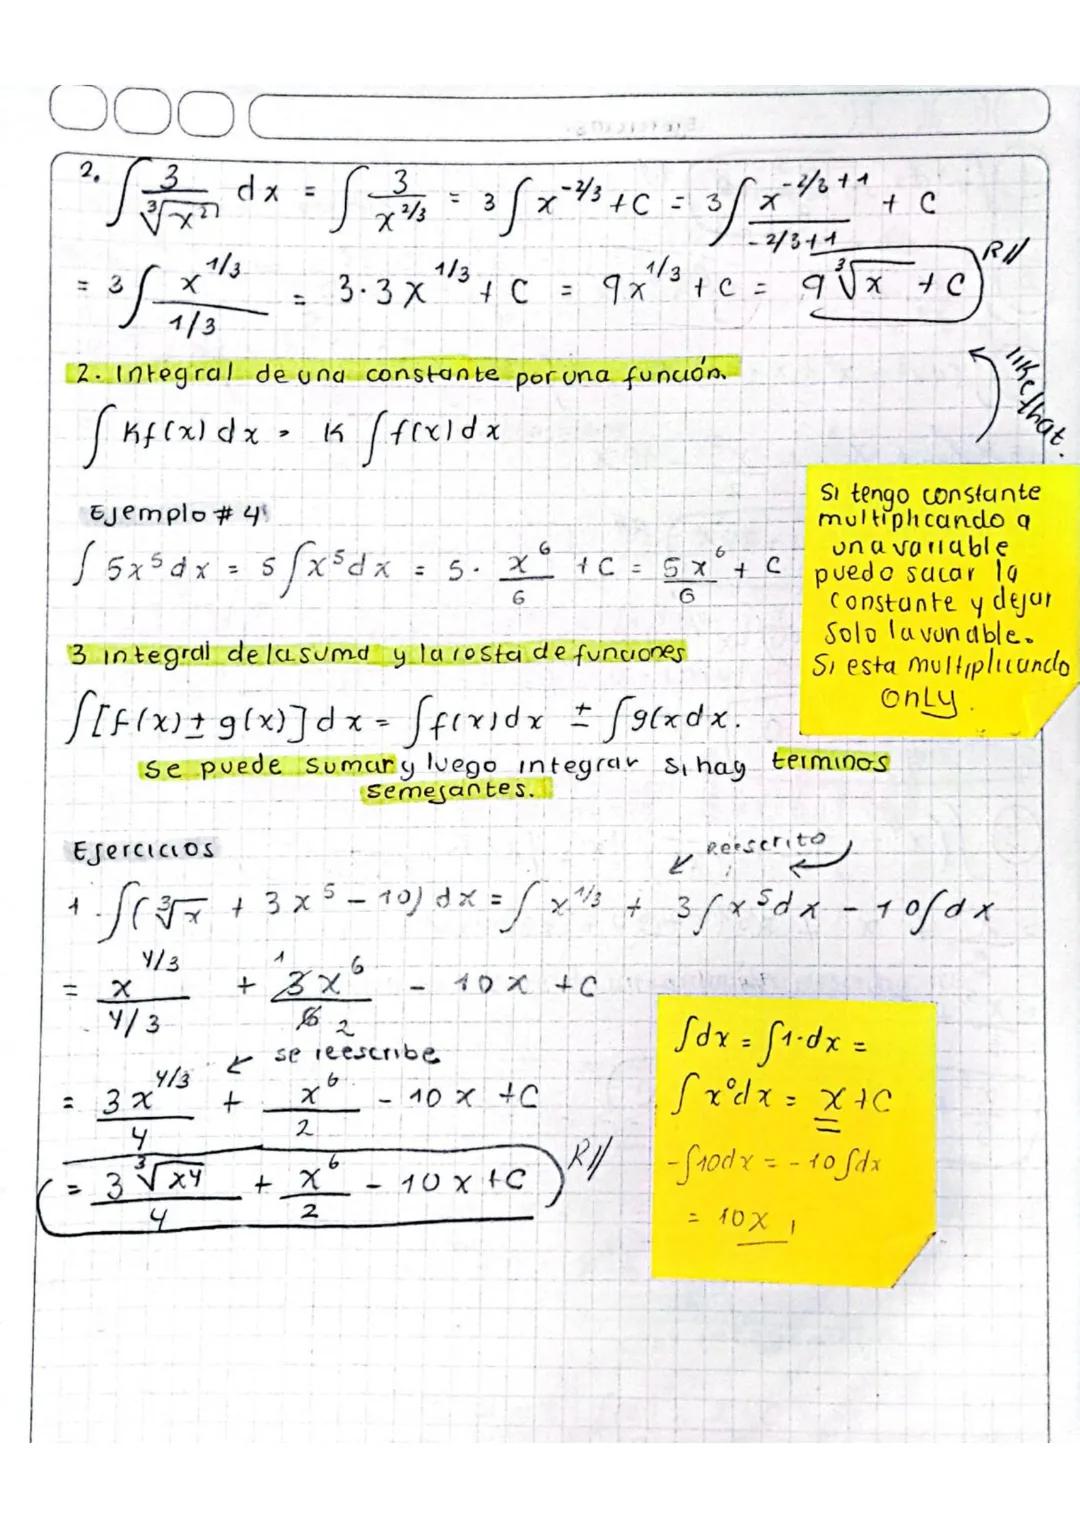 2. ∫ 3/∛x² dx = ∫ 3/x^2/3 = 3 ∫ x^-2/3 + C = 3 ∫ x^-2/3+1/-2/3+1 + C
= 3 ∫ x^1/3/1/3 = 3·3x^1/3 + C = 9x^1/3 + C = 9∛x + C R//
like that.
2. Integral de una constante por una función.
∫ Kf(x) dx = K ∫ f(x) dx
Si tengo constante
multiplicando a
una variable
puedo sacar la
constante y dejar
solo la variable.
Si esta multiplicando
only.
Ejemplo # 4
∫ 5x⁵ dx = 5 ∫ x⁵ dx = 5 · x⁶/6 + C = 5x⁶/6 + C
3 integral de la suma y la resta de funciones
∫ [f(x) ± g(x)] dx = ∫ f(x) dx ± ∫ g(x dx.
se puede sumar y luego integrar si hay terminos
semejantes.
Ejercicios
Reescrito
1. ∫ (∛x + 3x⁵ - 10) dx = ∫ x^1/3 + 3 ∫ x⁵ dx - 10 ∫ dx
= x^4/3/4/3 + 1 3x⁶/6 2 - 10x + C
se reescribe
= 3x^4/3/4 + x⁶/2 - 10x + C
= 3∛x4/4 + x⁶/2 - 10x + C R//
∫ dx = ∫ 1·dx =
∫ x⁰ dx = x + C
-∫ 10dx = -10 ∫ dx
= 10x